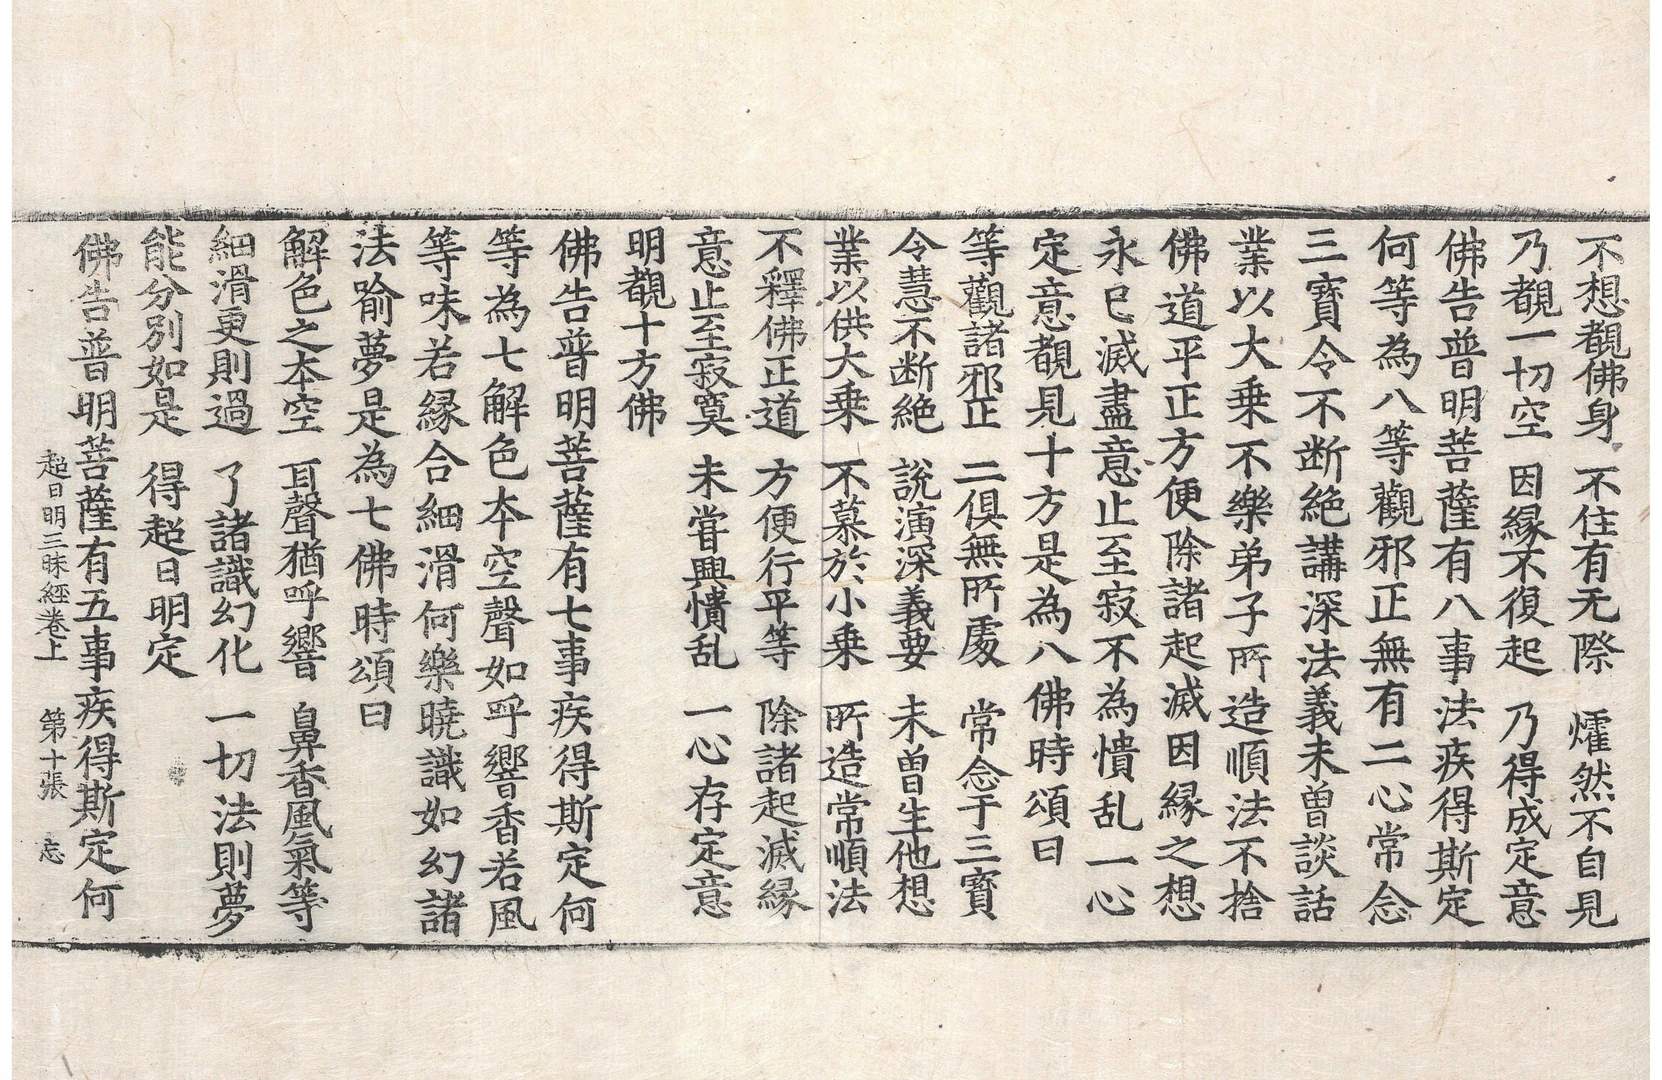 不想覩佛身　不住有无際　燿然不自見
乃覩一切空　因緣不復起　乃得成定意
佛告普明菩薩有八事法疾得斯定
何等為八等觀邪正無有二心常念
三寶令不断絶講深法義未曽談話
業以大乗不樂弟子所造順法不捨
佛道平正方便除諸起滅因緣之想
永已滅盡意止至寂不為憒乱一心
定意覩見十方是為八佛時頌曰
等觀諸邪正　二俱無所處　常念于三寶
令慧不断絶　說演深義要　未曽生他想
業以供大乗　不慕於小乗　所造常順法
不釋佛正道　方便行平等　除諸起滅緣
意止至寂寞　未甞興憒乱　一心存定意
明覩十方佛
佛告普明菩薩有七事疾得斯定何
等為七解色本空聲如呼響香若風
等味若緣合細滑何樂曉識如幻諸
法喻夢是為七佛時頌曰
解色之本空　耳聲猶呼響　鼻香風氣等
細滑更則過　了諸識幻化　一切法則夢
能分別如是　得超日明定
超日明三昧經卷上　第十張　忘
佛告普明菩薩有五事疾得斯定何